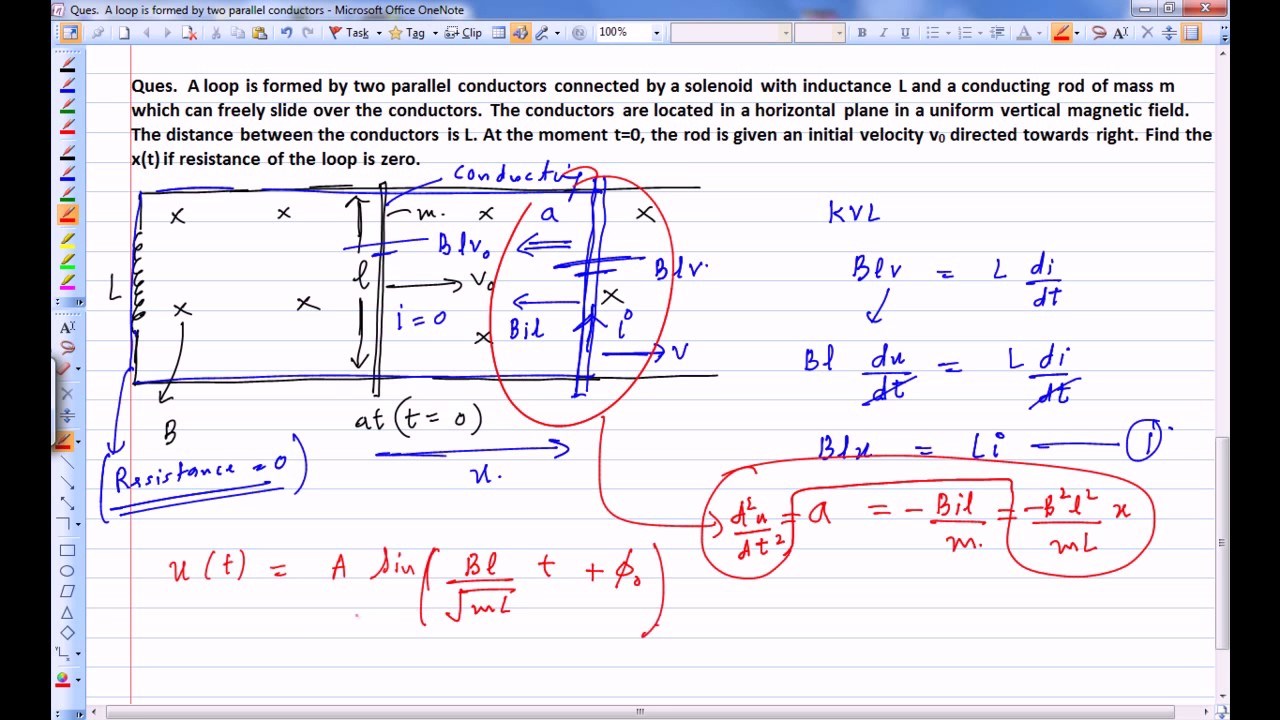 Ques. A loop is formed by two parallel conductors - Microsoft Office OneNote
Task Tag Clip 100% B I U A
Ques. A loop is formed by two parallel conductors connected by a solenoid with inductance L and a conducting rod of mass m
which can freely slide over the conductors. The conductors are located in a horizontal plane in a uniform vertical magnetic field.
The distance between the conductors is L. At the moment t=0, the rod is given an initial velocity v₀ directed towards right. Find the
x(t) if resistance of the loop is zero.
conducting
x x m. x a x
KVL
Blv₀
Blv.
Blv = L di/dt
L l v₀
x x x
i = 0
Bil i
x v
Bl dx/dt = L di/dt
B
at (t = 0)
Blx = Li — (1)
(Resistance = 0)
x.
d²x/dt² = a = - Bil/m. = -B²l²/mL x
x(t) = A sin( Bl/√mL t + ϕ₀ )